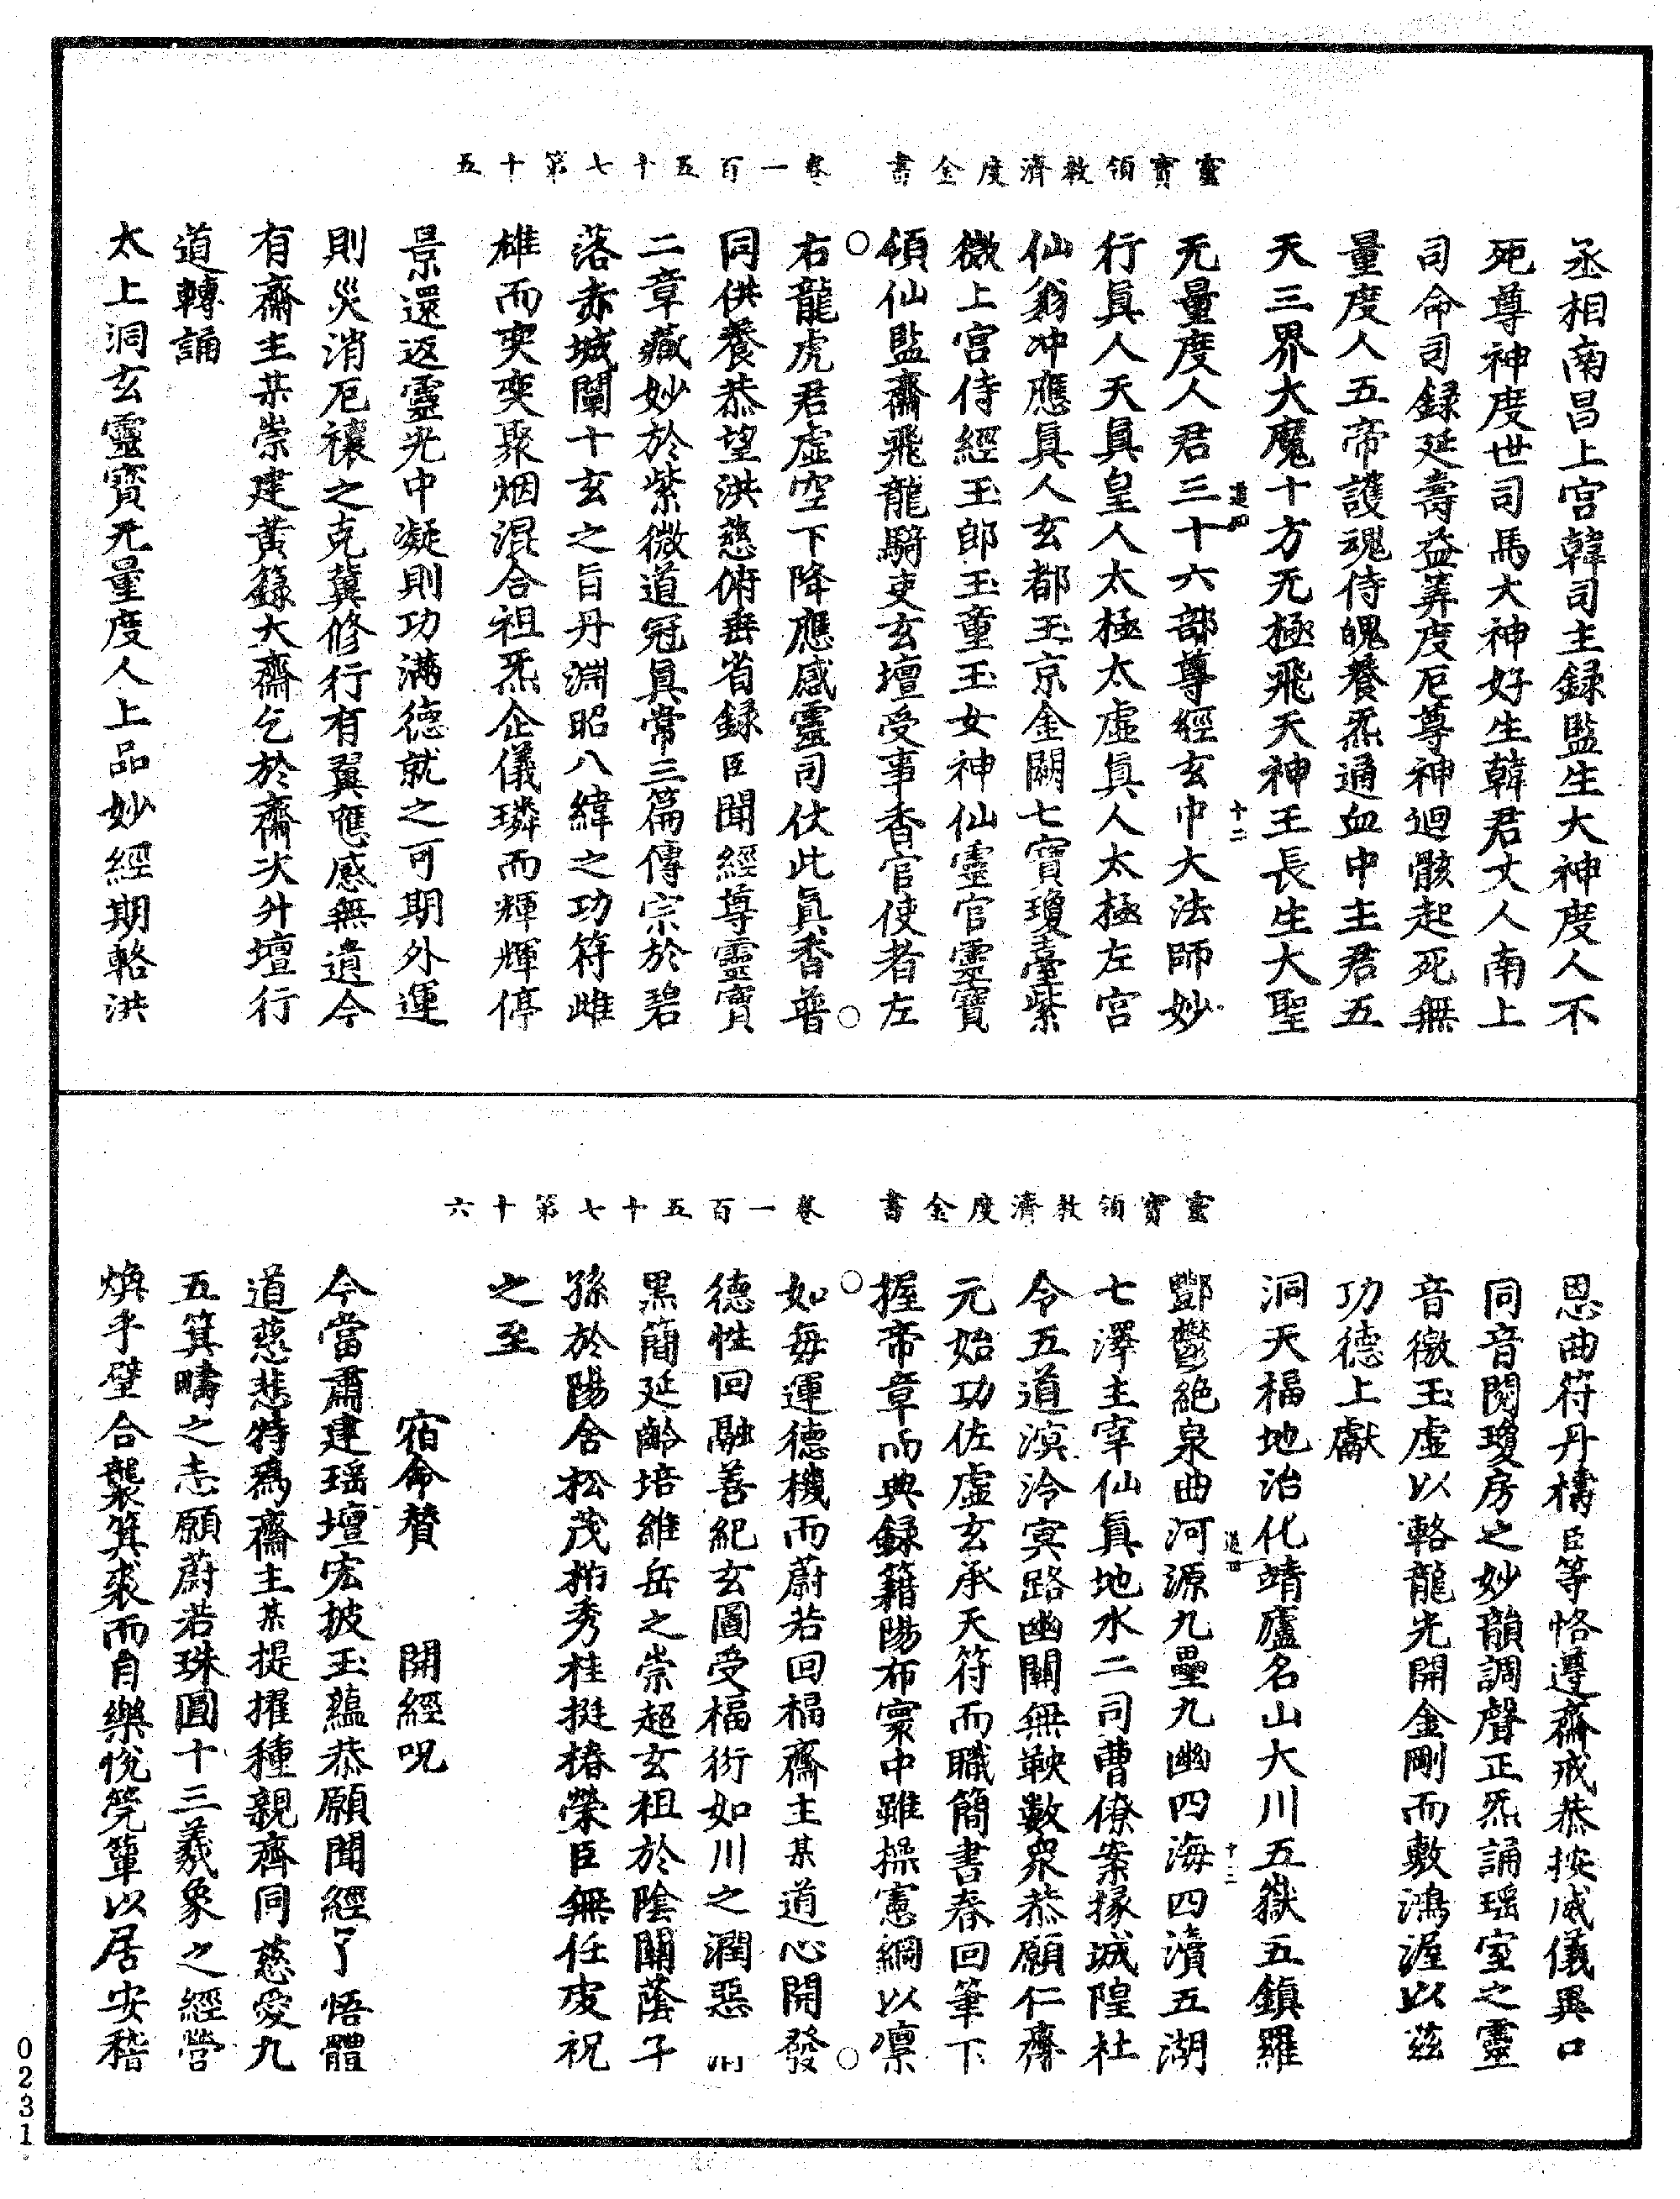 靈寶領教濟度金書　卷一百五十七第十五
丞相南昌上宮韓司主録監生大神度人不
死尊神度世司馬大神好生韓君丈人南上
司命司録延壽益筭度厄尊神迴骸起死無
量度人五帝護魂侍魄養炁通血中主君五
天三界大魔十方无極飛天神王長生大聖
无量度人君三十六部尊經玄中大法師妙
道四　十二
行眞人天眞皇人太極太虛眞人太極左宮
仙翁冲應眞人玄都玉京金闕七寶瓊臺紫
微上宮侍經玉郎玉童玉女神仙靈官靈寶
領仙監齋飛龍騎吏玄壇受事香官使者左
右龍虎君虛空下降應感靈司仗此眞香普
同供養恭望洪慈俯垂省録臣聞經尊靈寶
二章藏妙於紫微道冠眞常三篇傳宗於碧
落赤城闡十玄之旨丹淵昭八緯之功符雌
雄而奕奕聚烟混合祖炁企儀璘而輝輝停
景還返靈光中凝則功滿德就之可期外運
則災消厄禳之克冀修行有翼應感無遺今
有齋主某崇建黃籙大齋乞於齋次升壇行
道轉誦
太上洞玄靈寶无量度人上品妙經期輅洪
靈寶領教濟度金書　卷一百五十七第十六
恩曲符丹禱臣等恪遵齋戒恭按威儀異口
同音閱瓊房之妙韻調聲正炁誦瑶室之靈
音徹玉虛以輅龍光開金剛而敷鴻渥以茲
功德上獻
洞天福地治化靖廬名山大川五嶽五鎮羅
酆鬱絕泉曲河源九壘九幽四海四瀆五湖
道四　十三
七澤主宰仙眞地水二司曹僚案掾城隍社
令五道溟泠冥路幽關無鞅數衆恭願仁齊
元始功佐虛玄承天符而職簡書春回筆下
握帝章而典録籍陽布寰中雖操憲綱以凛
如每運德機而蔚若回福齋主某道心開發
德性回融善紀玄圖受福衍如川之潤惡削
黑簡延齡培維岳之崇超玄祖於陰關蔭子
孫於陽舍松茂柏秀桂挺椿榮臣無任虔祝
之至
宿命贊　開經呪
今當肅建瑶壇宏披玉蘊恭願聞經了悟體
道慈悲特爲齋主某提擢種親齊同慈愛九
五箕疇之志願蔚若珠圓十三羲象之經營
煥乎璧合襲箕裘而自樂恱筦簟以居安稽
0231